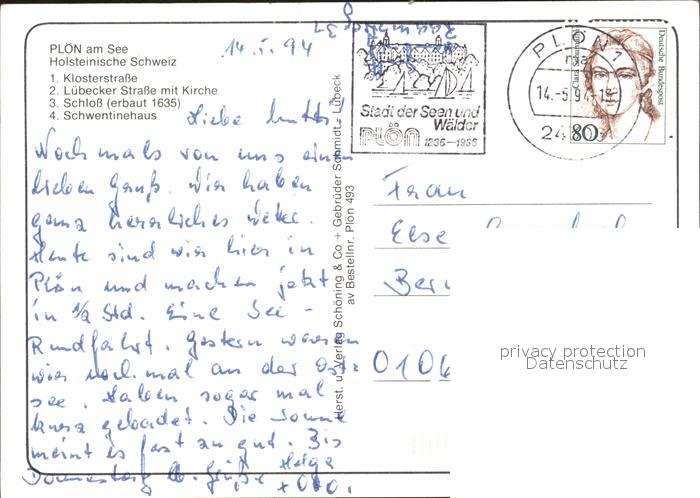 PLÖN am See
Holsteinische Schweiz
1. Klosterstraße
2. Lübecker Straße mit Kirche
3. Schloß (erbaut 1635)
4. Schwentinehaus
Liebe Mutti
Nochmals von uns einen
lieben Gruß. Wir haben
ganz herrliches Wetter.
Heute sind wir hier in
Plön und machen jetzt
in ½ Std. Eine See-
Rundfahrt. Gestern waren
wir noch mal an der Ost-
see. Haben sogar mal
kurz gebadet. Die Sonne
meint es fast zu gut. Bis
Donnerstag Grüße Helga
+ Otto.
Herst. u. Verlag Schöning & Co + Gebrüder Schmidt, Lübeck
av Bestellnr. Plön 493
Stadt der Seen und
Wälder
PLÖN 1236-1986
PLÖN 1
14.-5.94
Deutsche Bundespost
80
Frau
Else
010
privacy protection
Datenschutz